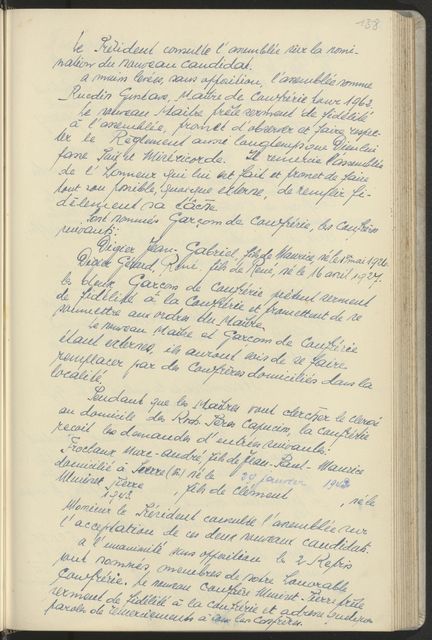 138
Le Président consulte l'assemblée sur la nomi-
nation du nouveau candidat.
a mains levées, sans opposition, l'assemblée nomme
Ruedin Gustave, Maître de Confrérie pour 1963.
Le nouveau Maître prête serment de fidélité
à l'assemblée, promet d'observer et faire respec-
ter le Règlement aussi longtemps que Dieu lui
fasse Paix et Miséricorde. Il remercie l'assemblée
de l'Honneur qui lui est fait et promet de faire
tout son possible, quoique externe, de remplir fi-
dèlement sa tâche.
Sont nommés Garçons de Confrérie, les confrères
suivants:
Digier Jean-Gabriel, fils de Maurice né le mai 1926.
Digier Gérard, René, fils de René, né le 16 avril 1927.
les deux Garçons de Confrérie prêtent serment
de fidélité à la Confrérie et promettent de se
soumettre aux ordres du Maître.
Le nouveau Maître et Garçons de Confrérie
étant externes, ils auront soin de se faire
remplacer par des Confrères domiciliés dans la
localité.
Pendant que les Maîtres vont chercher le clergé
au domicile des Rvds Pères Capucins, la confrérie
reçoit les demandes d'entrées suivantes:
Frochaux Marc-André, fils de Jean-Paul-Maurice
domicilié à né le 29 janvier
Pierre, fils de Clément, né le
1943
Monsieur le Président consulte l'assemblée sur
l'acceptation de ces deux nouveaux candidats.
a l'unanimité sans opposition les 2
sont nommés, membres de notre Honorable
Confrérie. Le nouveau Confrère Pierre prête
serment de fidélité à la confrérie et adresse quelques
paroles de remerciements à tous les confrères.